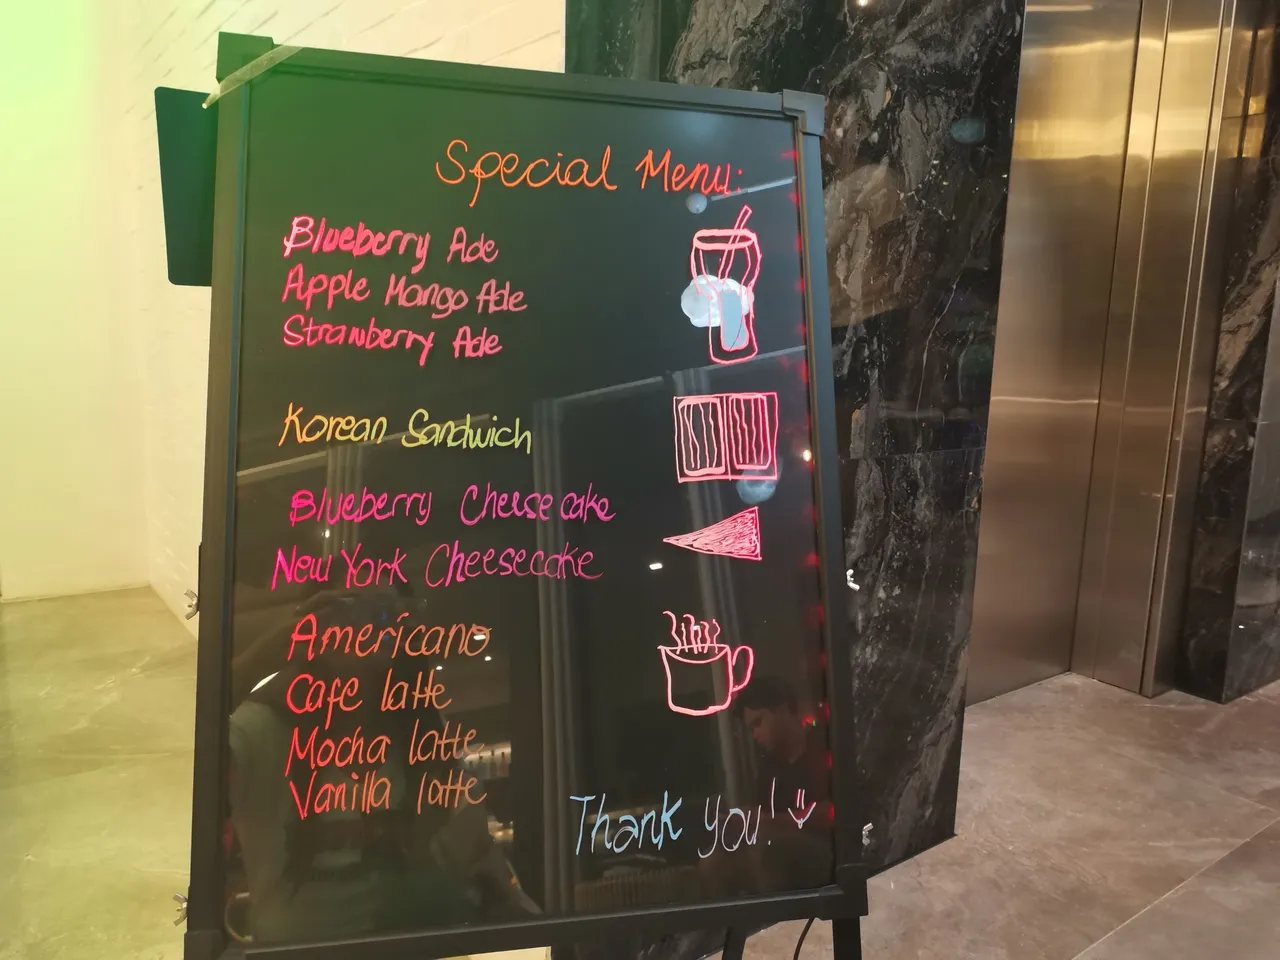 Special Menu:
Blueberry Ade
Apple Mango Ade
Strawberry Ade
Korean Sandwich
Blueberry Cheese cake
New York Cheesecake
Americano
Cafe latte
Mocha latte
Vanilla latte
Thank you!